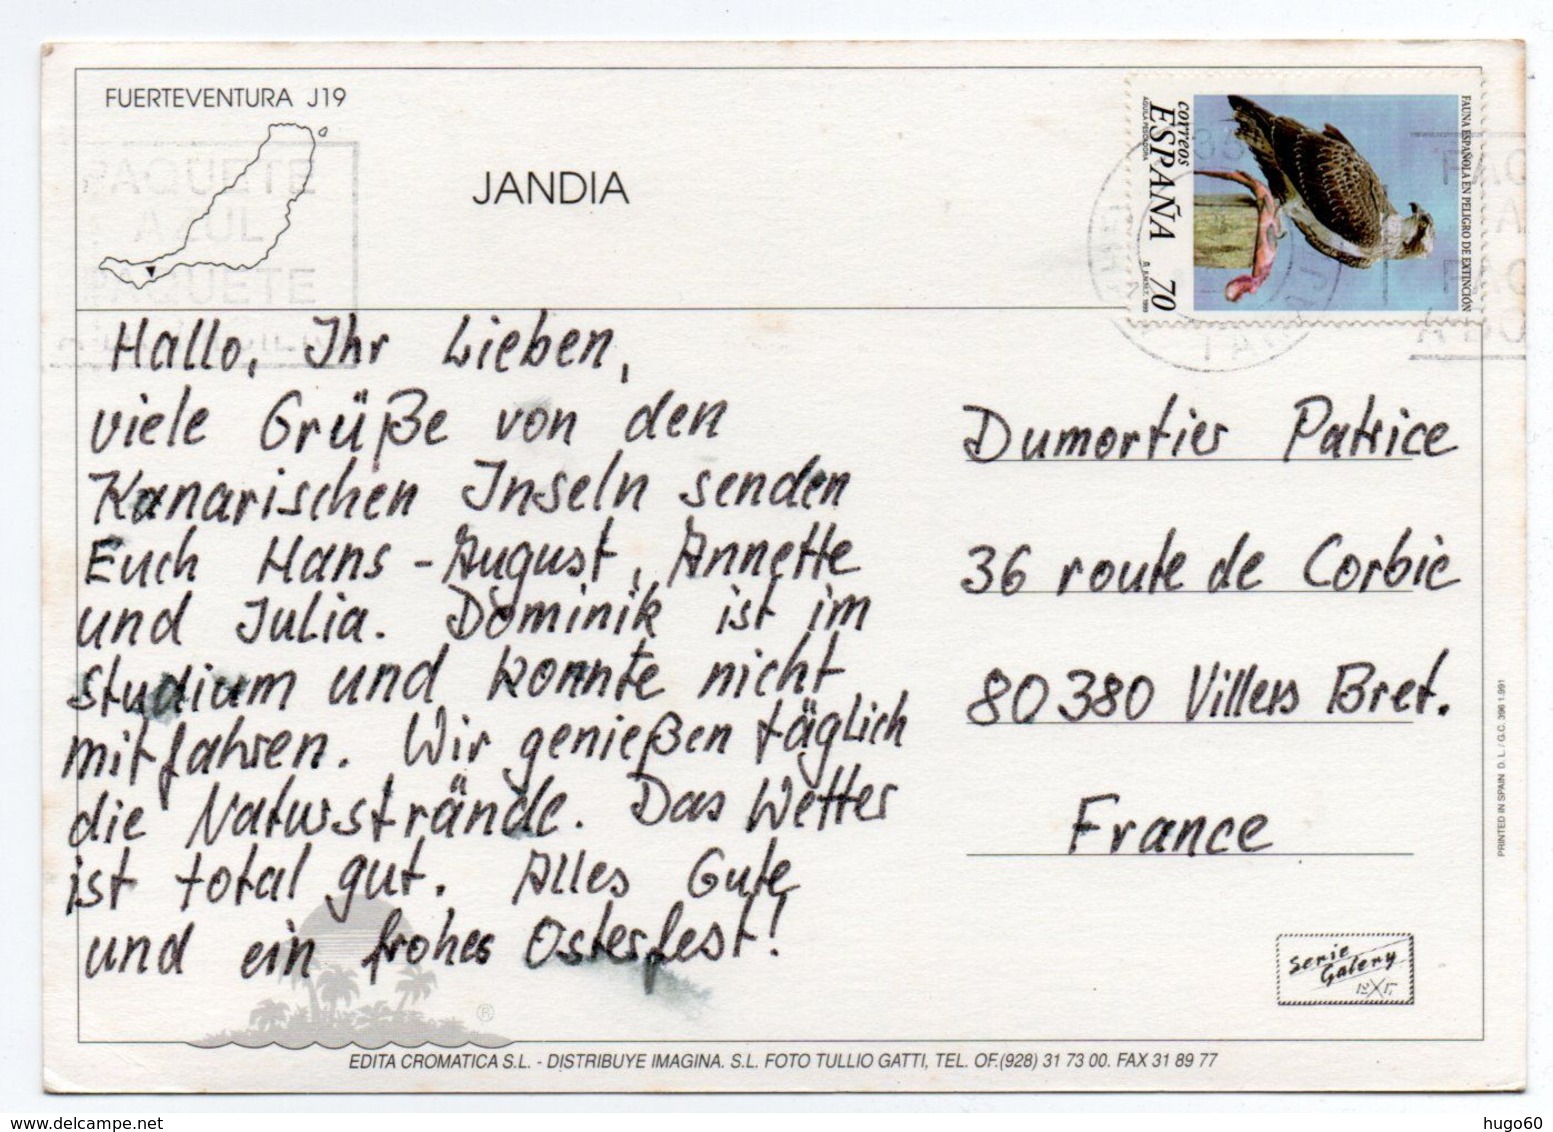 FUERTEVENTURA J19
JANDIA
PAQUETE
AZUL
PAQUETE
correos
ESPAÑA
70
AGUILA PESCADORA
FAUNA ESPAÑOLA EN PELIGRO DE EXTINCIÓN
Hallo, Ihr Lieben,
viele Grüße von den
Kanarischen Inseln senden
Euch Hans-August, Annette
und Julia. Dominik ist im
studium und konnte nicht
mitfahren. Wir genießen täglich
die Naturstrände. Das Wetter
ist total gut. Alles Gute
und ein frohes Osterfest!
Dumortier Patrice
36 route de Corbie
80380 Villers Bret.
France
PRINTED IN SPAIN D. L. / G.C. 396 1.991
Serie
Galery
®
EDITA CROMATICA S.L. - DISTRIBUYE IMAGINA. S.L. FOTO TULLIO GATTI, TEL. OF.(928) 31 73 00. FAX 31 89 77
hugo60